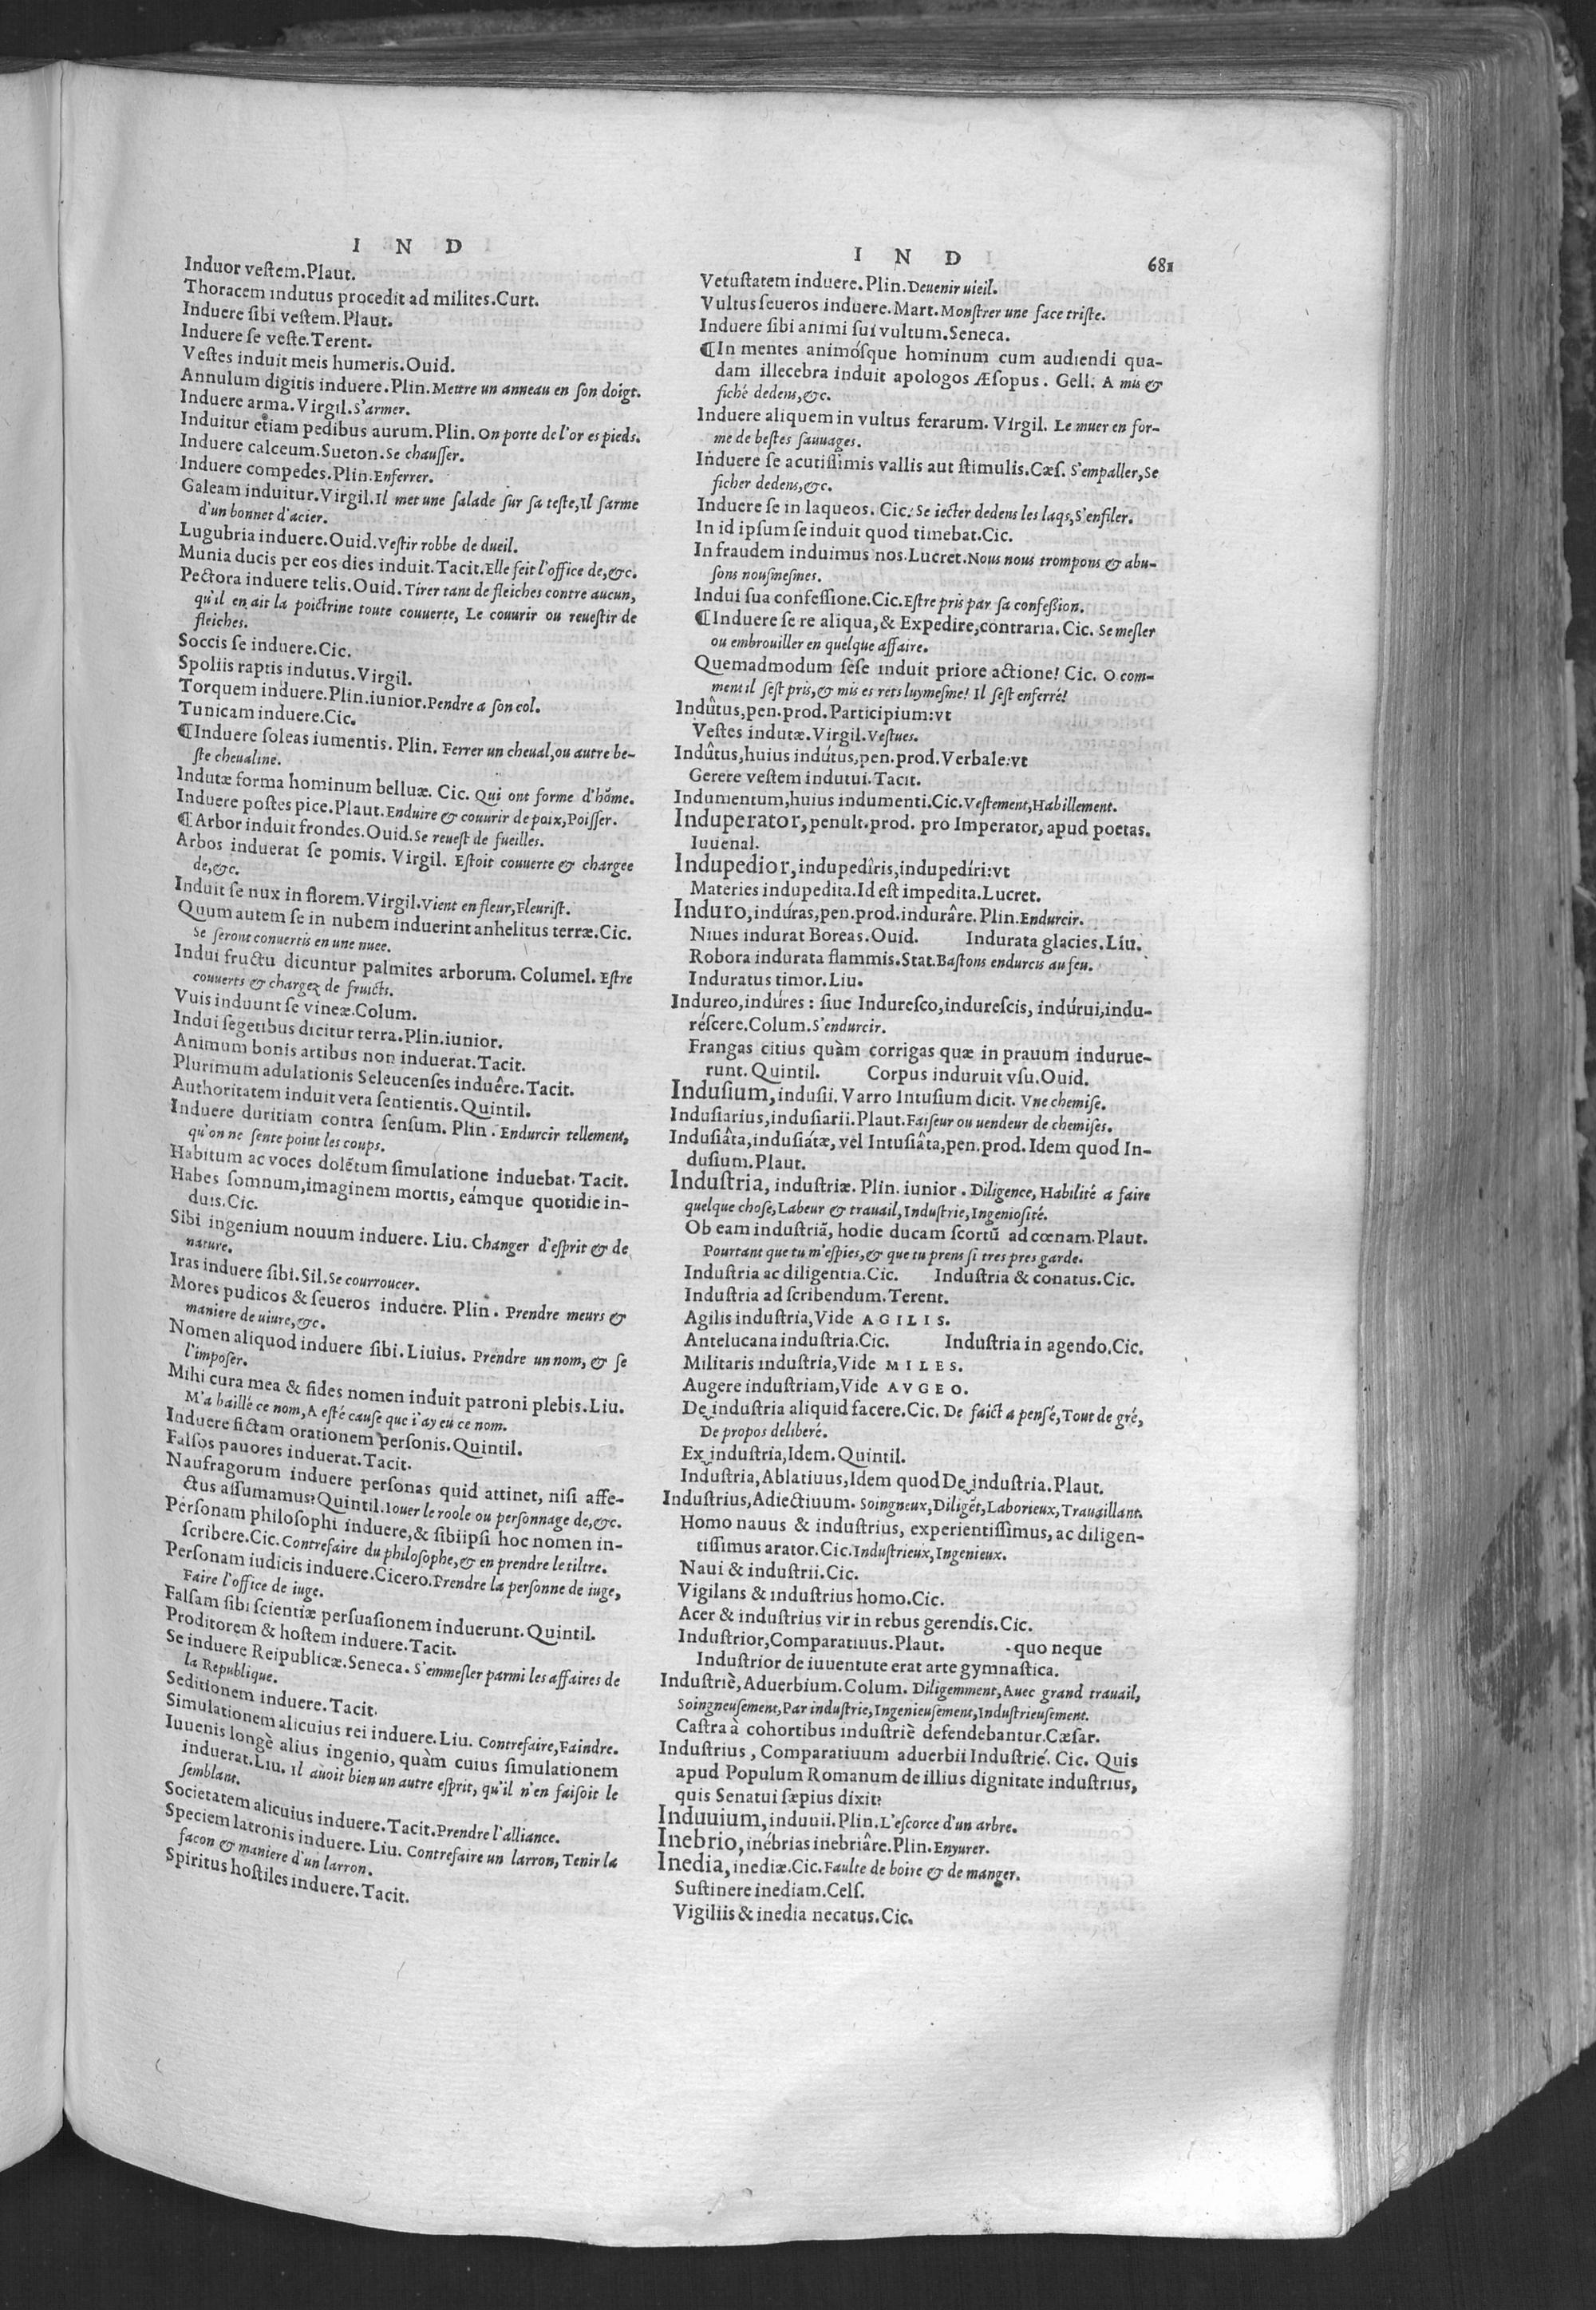 I N D
Induor veſtem.Plaut.
Thoracem indutus procedit ad milites.Curt.
Induere ſibi veſtem.Plaut.
Induere ſe veſte.Terent.
Veſtes induit meis humeris.Ouid.
Annulum digitis induere.Plin.Mettre un anneau en ſon doigt.
Induere arma.Virgil.S'armer.
Induitur etiam pedibus aurum.Plin.On porte de l'or es pieds.
Induere calceum.Sueton.Se chauſſer.
Induere compedes.Plin.Enferrer.
Galeam induitur.Virgil.Il met une ſalade ſur ſa teſte,Il ſarme
d'un bonnet d'acier.
Lugubria induere.Ouid.Veſtir robbe de dueil.
Munia ducis per eos dies induit.Tacit.Elle feit l'office de,&c.
Pectora induere telis.Ouid.Tirer tant de fleiches contre aucun,
qu'il en ait la poictrine toute couuerte, Le couurir ou reueſtir de
fleiches.
Soccis ſe induere.Cic.
Spoliis raptis indutus.Virgil.
Torquem induere.Plin.iunior.Pendre a ſon col.
Tunicam induere.Cic.
¶Induere ſoleas iumentis. Plin. Ferrer un cheual,ou autre be-
ſte cheualine.
Indutæ forma hominum belluæ. Cic. Qui ont forme d'hõme.
Induere poſtes pice.Plaut.Enduire & couurir de poix,Poiſſer.
¶Arbor induit frondes.Ouid.Se reueſt de fueilles.
Arbos induerat ſe pomis. Virgil. Eſtoit couuerte & chargee
de,&c.
Induit ſe nux in florem.Virgil.Vient en fleur,Fleuriſt.
Quum autem ſe in nubem induerint anhelitus terræ.Cic.
Se ſeront conuertis en une nuee.
Indui fructu dicuntur palmites arborum. Columel. Eſtre
couuerts & chargez de fruicts.
Vuis induunt ſe vineæ.Colum.
Indui ſegetibus dicitur terra.Plin.iunior.
Animum bonis artibus non induerat.Tacit.
Plurimum adulationis Seleucenſes induêre.Tacit.
Authoritatem induit vera ſentientis.Quintil.
Induere duritiam contra ſenſum. Plin. Endurcir tellement,
qu'on ne ſente point les coups.
Habitum ac voces dolẽtum ſimulatione induebat.Tacit.
Habes ſomnum,imaginem mortis, eámque quotidie in-
duis.Cic.
Sibi ingenium nouum induere. Liu. Changer d'eſprit & de
nature.
Iras induere ſibi.Sil.Se courroucer.
Mores pudicos & ſeueros induere. Plin. Prendre meurs &
maniere de uiure,&c.
Nomen aliquod induere ſibi.Liuius. Prendre un nom, & ſe
l'impoſer.
Mihi cura mea & fides nomen induit patroni plebis.Liu.
M'a baillé ce nom,A eſté cauſe que i'ay eu ce nom.
Induere fictam orationem perſonis.Quintil.
Falſos pauores induerat.Tacit.
Naufragorum induere perſonas quid attinet, niſi affe-
ctus aſſumamus?Quintil.Iouer le roole ou perſonnage de,&c.
Perſonam philoſophi induere,& ſibiipſi hoc nomen in-
ſcribere.Cic.Contrefaire du philoſophe,& en prendre le tiltre.
Perſonam iudicis induere.Cicero.Prendre la perſonne de iuge,
Faire l'office de iuge.
Falſam ſibi ſcientiæ perſuaſionem induerunt.Quintil.
Proditorem & hoſtem induere.Tacit.
Se induere Reipublicæ.Seneca. S'emmeſler parmi les affaires de
la Republique.
Seditionem induere.Tacit.
Simulationem alicuius rei induere.Liu. Contrefaire,Faindre.
Iuuenis longè alius ingenio, quàm cuius ſimulationem
induerat.Liu. Il auoit bien un autre eſprit, qu'il n'en faiſoit le
ſemblant.
Societatem alicuius induere.Tacit.Prendre l'alliance.
Speciem latronis induere. Liu. Contrefaire un larron, Tenir la
facon & maniere d'un larron.
Spiritus hoſtiles induere.Tacit.
I N D
681
Vetuſtatem induere.Plin.Deuenir uieil.
Vultus ſeueros induere.Mart.Monſtrer une face triſte.
Induere ſibi animi ſui vultum.Seneca.
¶In mentes animóſque hominum cum audiendi qua-
dam illecebra induit apologos Æſopus. Gell. A mis &
fiché dedens,&c.
Induere aliquem in vultus ferarum. Virgil. Le muer en for-
me de beſtes ſauuages.
Induere ſe acutiſſimis vallis aut ſtimulis.Cæſ. S'empaller,Se
ficher dedens,&c.
Induere ſe in laqueos. Cic. Se iecter dedens les laqs,S'enfiler.
In id ipſum ſe induit quod timebat.Cic.
In fraudem induimus nos.Lucret.Nous nous trompons & abu-
ſons nouſmeſmes.
Indui ſua confeſſione.Cic.Eſtre pris par ſa confeßion.
¶Induere ſe re aliqua,& Expedire,contraria. Cic. Se meſler
ou embrouiller en quelque affaire.
Quemadmodum ſeſe induit priore actione! Cic. O com-
ment il ſeſt pris,& mis es rets luymeſme! Il ſeſt enferré!
Indûtus,pen.prod.Participium:vt
Veſtes indutæ.Virgil.Veſtues.
Indûtus,huius indútus,pen.prod.Verbale:vt
Gerere veſtem indutui.Tacit.
Indumentum,huius indumenti.Cic.Veſtement,Habillement.
Induperator,penult.prod. pro Imperator, apud poetas.
Iuuenal.
Indupedior,indupedîris,indupedíri:vt
Materies indupedita.Id eſt impedita.Lucret.
Induro,indúras,pen.prod.indurâre. Plin.Endurcir.
Niues indurat Boreas.Ouid. Indurata glacies.Liu.
Robora indurata flammis.Stat.Baſtons endurcis au feu.
Induratus timor.Liu.
Indureo,indúres: ſiue Indureſco,indureſcis, indúrui,indu-
réſcere.Colum.S'endurcir.
Frangas citius quàm corrigas quæ in prauum indurue-
runt.Quintil. Corpus induruit vſu.Ouid.
Induſium,induſii. Varro Intuſium dicit. Vne chemiſe.
Induſiarius,induſiarii.Plaut.Faiſeur ou uendeur de chemiſes.
Induſiâta,induſiátæ, vel Intuſiâta,pen.prod. Idem quod In-
duſium.Plaut.
Induſtria, induſtriæ. Plin. iunior. Diligence, Habilité a faire
quelque choſe,Labeur & trauail,Induſtrie,Ingenioſité.
Ob eam induſtriã, hodie ducam ſcortũ ad cœnam.Plaut.
Pourtant que tu m'eſpies,& que tu prens ſi tres pres garde.
Induſtria ac diligentia.Cic. Induſtria & conatus.Cic.
Induſtria ad ſcribendum.Terent.
Agilis induſtria,Vide AGILIS.
Antelucana induſtria.Cic. Induſtria in agendo.Cic.
Militaris induſtria,Vide MILES.
Augere induſtriam,Vide AVGEO.
De‿induſtria aliquid facere.Cic. De faict a penſé,Tout de gré,
De propos deliberé.
Ex‿induſtria,Idem.Quintil.
Induſtria,Ablatiuus,Idem quod De‿induſtria.Plaut.
Induſtrius,Adiectiuum. Soingneux,Diligẽt,Laborieux,Trauaillant.
Homo nauus & induſtrius, experientiſſimus, ac diligen-
tiſſimus arator.Cic.Induſtrieux,Ingenieux.
Naui & induſtrii.Cic.
Vigilans & induſtrius homo.Cic.
Acer & induſtrius vir in rebus gerendis.Cic.
Induſtrior,Comparatiuus.Plaut. -quo neque
Induſtrior de iuuentute erat arte gymnaſtica.
Induſtriè, Aduerbium.Colum. Diligemment,Auec grand trauail,
Soingneuſement,Par induſtrie,Ingenieuſement,Induſtrieuſement.
Caſtra à cohortibus induſtriè defendebantur.Cæſar.
Induſtrius, Comparatiuum aduerbii Induſtriè. Cic. Quis
apud Populum Romanum de illius dignitate induſtrius,
quis Senatui ſæpius dixit?
Induuium, induuii.Plin.L'eſcorce d'un arbre.
Inebrio, inébrias inebriâre.Plin.Enyurer.
Inedia, inediæ.Cic.Faulte de boire & de manger.
Suſtinere inediam.Celſ.
Vigiliis & inedia necatus.Cic.